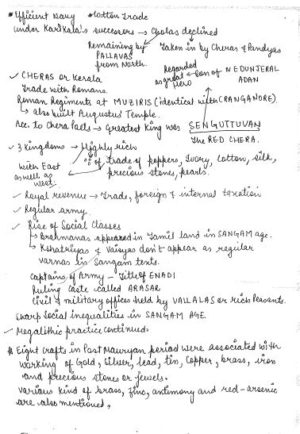 • Efficient Navy • Cotton Trade
under Karikala's successors → Cholas declined
Remaining by PALLAVAS from North.
Taken in by Cheras & Pandyas
Regarded as great hero
Son of NEDUNJERAL ADAN
✓ CHERAS or Kerala
Trade with Romans.
Roman Regiments at MUZIRIS (identical with CRANGANORE)
↳ also built Augustus Temple.
Acc. to Chera facts → Greatest king was SENGUTTUVAN
The RED CHERA.
✓ 3 Kingdoms → Highly rich
with East as well as West
of Trade of peppers, Ivory, cotton, silk, precious stones, pearls.
✓ Royal revenue → Trade, foreign & internal taxation
✓ Regular army
✓ Rise of Social Classes
↳ Brahmanas appeared in Tamil land in SANGAM age.
↳ Kshatriyas & Vaisyas don't appear as regular
varnas in Sangam texts.
captains of Army → Title of ENADI
Ruling Caste called ARASAR
Civil & military offices held by VALLALAS or rich Peasants.
Sharp Social inequalities in SANGAM AGE.
✓ Megalithic practice continued.
* Eight crafts in Post Mauryan period were associated with
working of Gold, Silver, lead, tin, copper, brass, iron
and precious stones or jewels.
Various kind of brass, zinc, antimony and red-arsenic
are also mentioned.